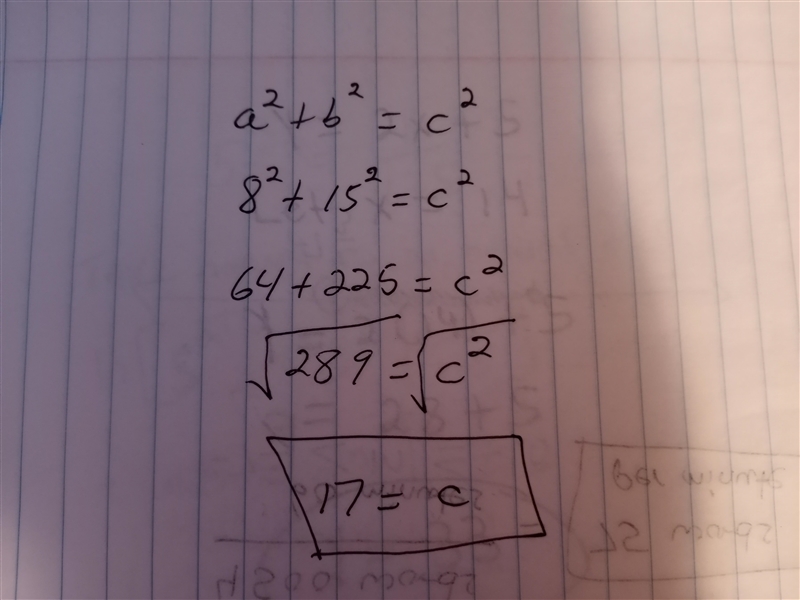 a² + b² = c²
8² + 15² = c²
64 + 225 = c²
√289 = √c²
17 = c